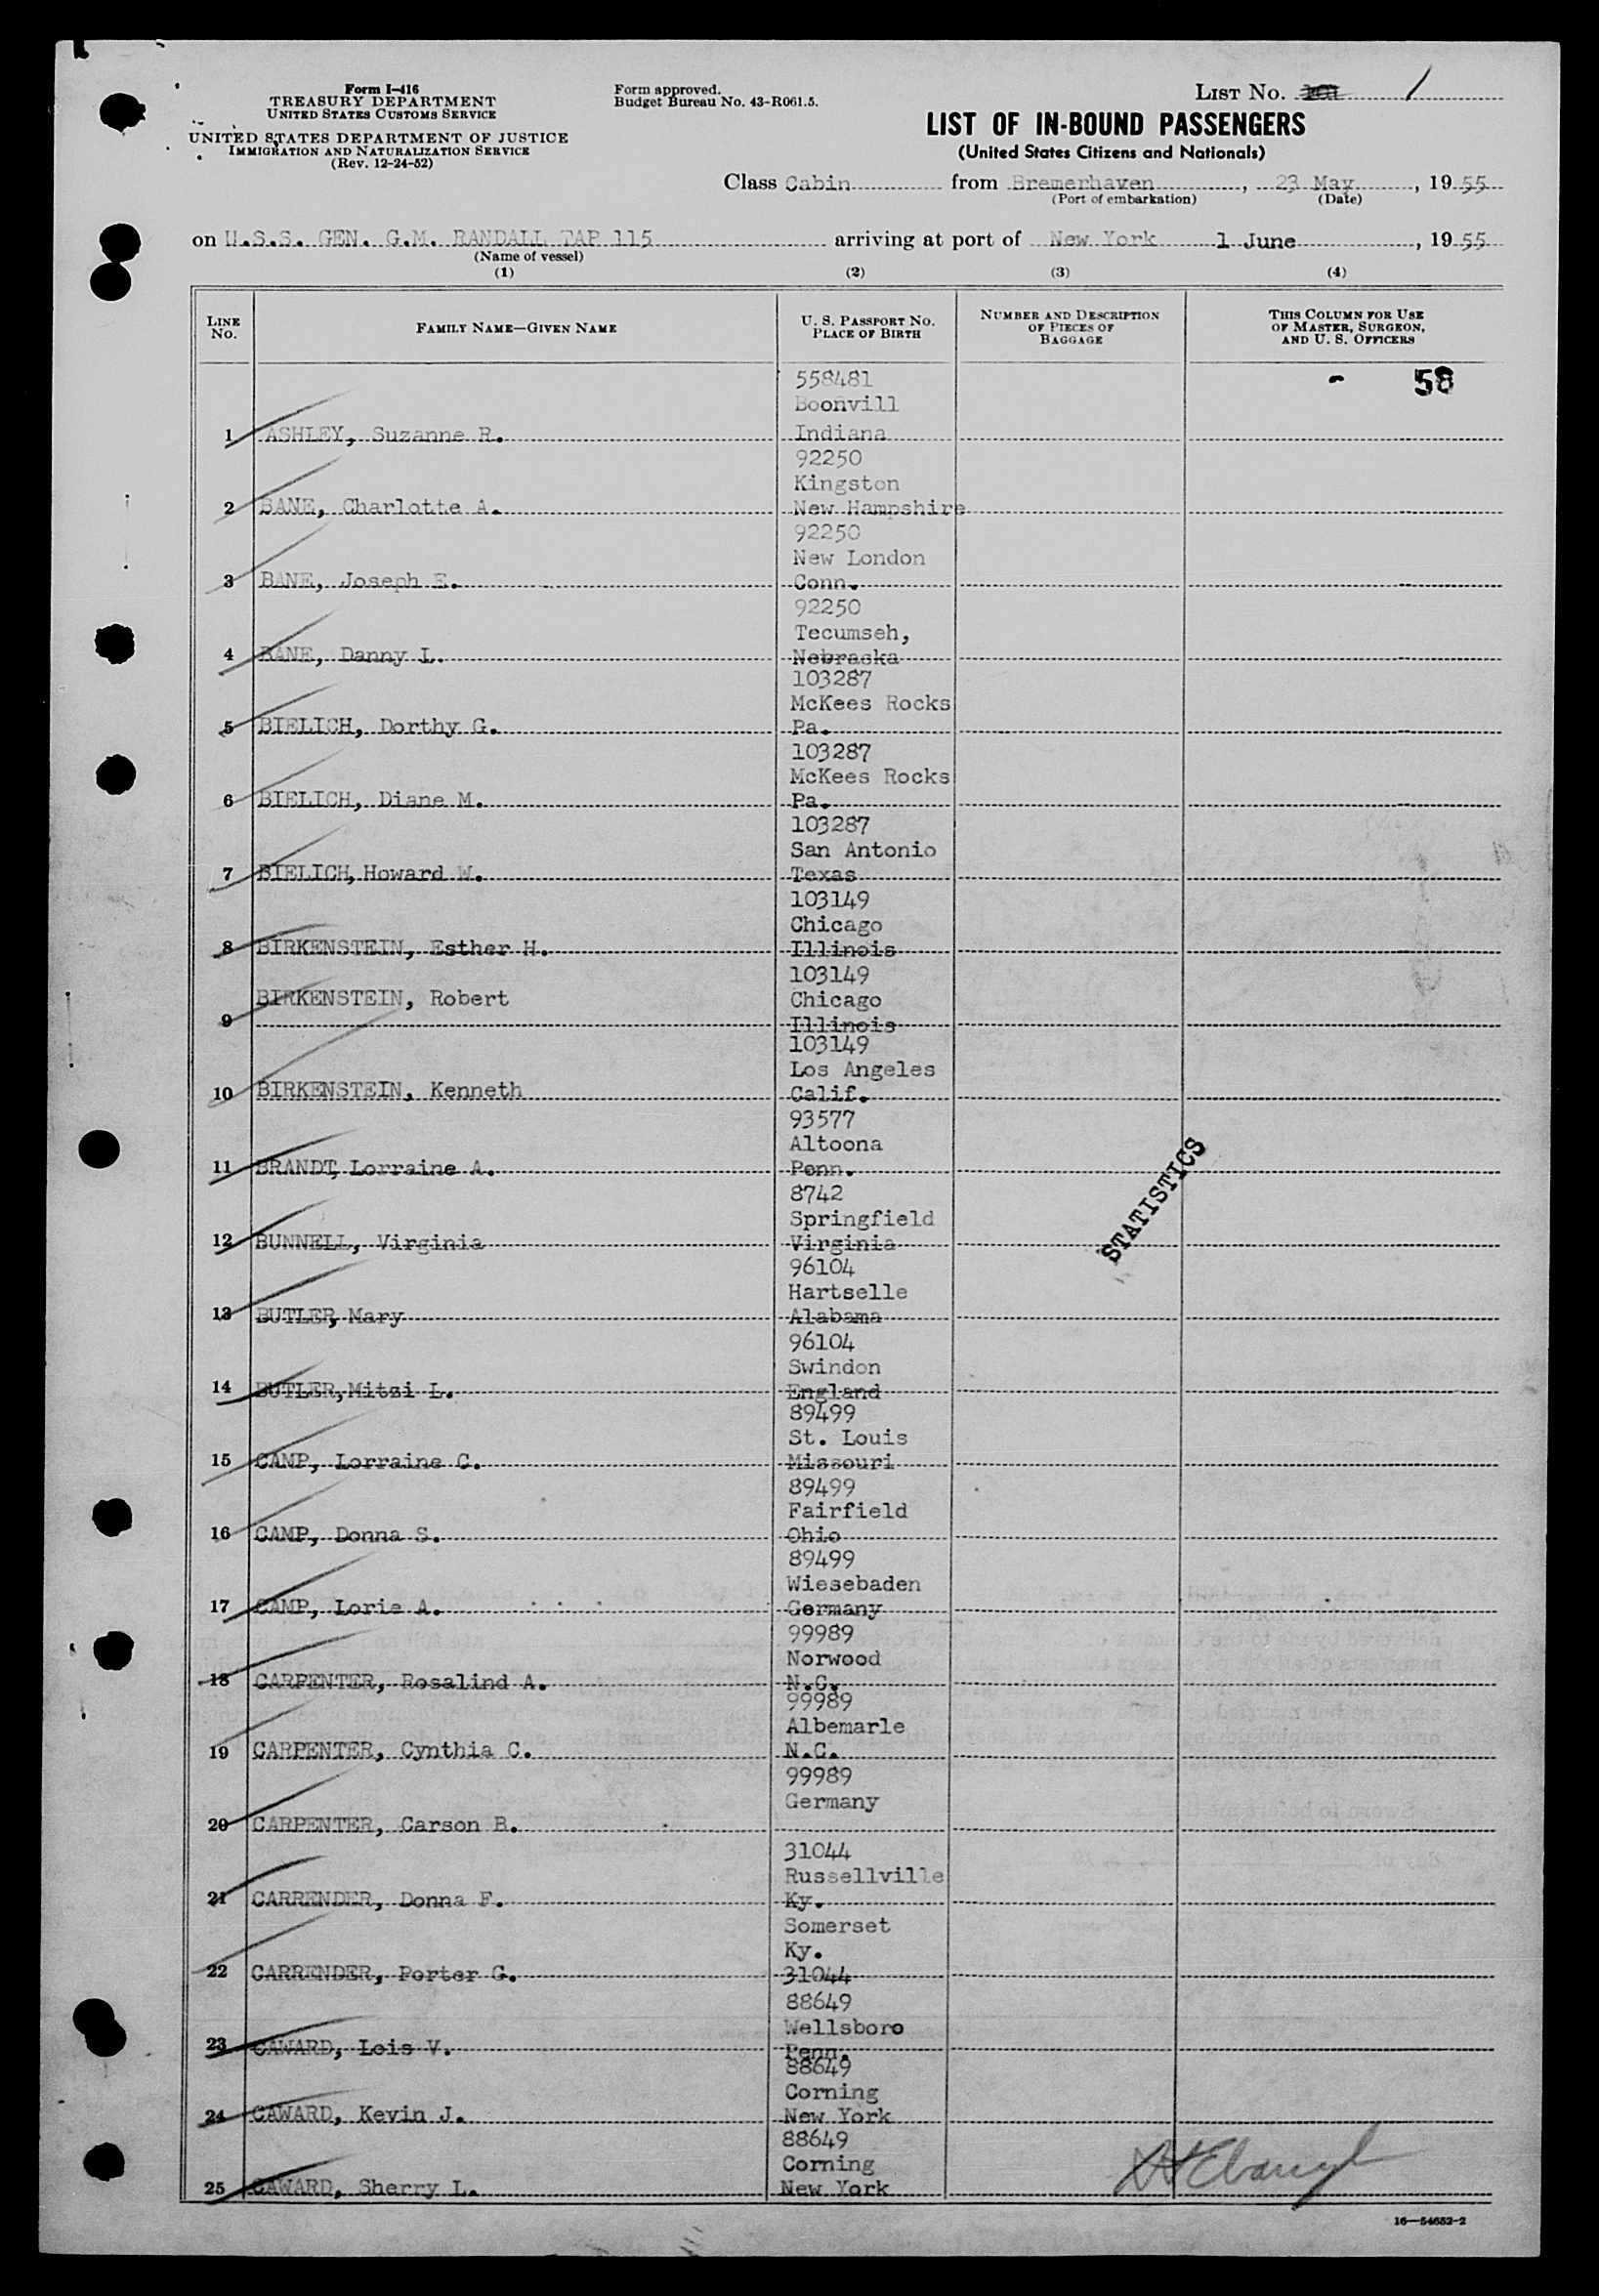 Form I-416
TREASURY DEPARTMENT
UNITED STATES CUSTOMS SERVICE
UNITED STATES DEPARTMENT OF JUSTICE
IMMIGRATION AND NATURALIZATION SERVICE
(Rev. 12-24-52)
Form approved.
Budget Bureau No. 43-R061.5.
LIST NO. 1
LIST OF IN-BOUND PASSENGERS
(United States Citizens and Nationals)
Class Cabin from Bremerhaven, 23 May, 19 55
(Port of embarkation) (Date)
on U.S.S. GEN. G.M. RANDALL TAP 115 arriving at port of New York 1 June, 19 55
(Name of vessel)
(1) (2) (3) (4)
LINE NO.
FAMILY NAME—GIVEN NAME
U. S. PASSPORT NO.
PLACE OF BIRTH
NUMBER AND DESCRIPTION
OF PIECES OF
BAGGAGE
THIS COLUMN FOR USE
OF MASTER, SURGEON,
AND U. S. OFFICERS
558481 - 58
Boonvill
1 ASHLEY, Suzanne R. Indiana
92250
Kingston
2 BANE, Charlotte A. New Hampshire
92250
New London
3 BANE, Joseph E. Conn.
92250
Tecumseh,
4 BANE, Danny L. Nebraska
103287
McKees Rocks
5 BIELICH, Dorthy G. Pa.
103287
McKees Rocks
6 BIELICH, Diane M. Pa.
103287
San Antonio
7 BIELICH, Howard W. Texas
103149
Chicago
8 BIRKENSTEIN, Esther H. Illinois
103149
BIRKENSTEIN, Robert Chicago
9 Illinois
103149
Los Angeles
10 BIRKENSTEIN, Kenneth Calif.
93577
Altoona
11 BRANDT, Lorraine A. Penn.
8742
Springfield
12 BUNNELL, Virginia Virginia
STATISTICS
96104
Hartselle
13 BUTLER, Mary Alabama
96104
Swindon
14 BUTLER, Mitzi L. England
89499
St. Louis
15 CAMP, Lorraine C. Missouri
89499
Fairfield
16 CAMP, Donna S. Ohio
89499
Wiesebaden
17 CAMP, Lorie A. Germany
99989
Norwood
18 CARPENTER, Rosalind A. N.C.
99989
Albemarle
19 CARPENTER, Cynthia C. N.C.
99989
Germany
20 CARPENTER, Carson B.
31044
Russellville
21 CARRENDER, Donna F. Ky.
Somerset
Ky.
22 CARRENDER, Porter G. 31044
88649
Wellsboro
23 CAWARD, Lois V. Penn.
88649
Corning
24 CAWARD, Kevin J. New York
88649
Corning
25 CAWARD, Sherry L. New York
16—54652-2